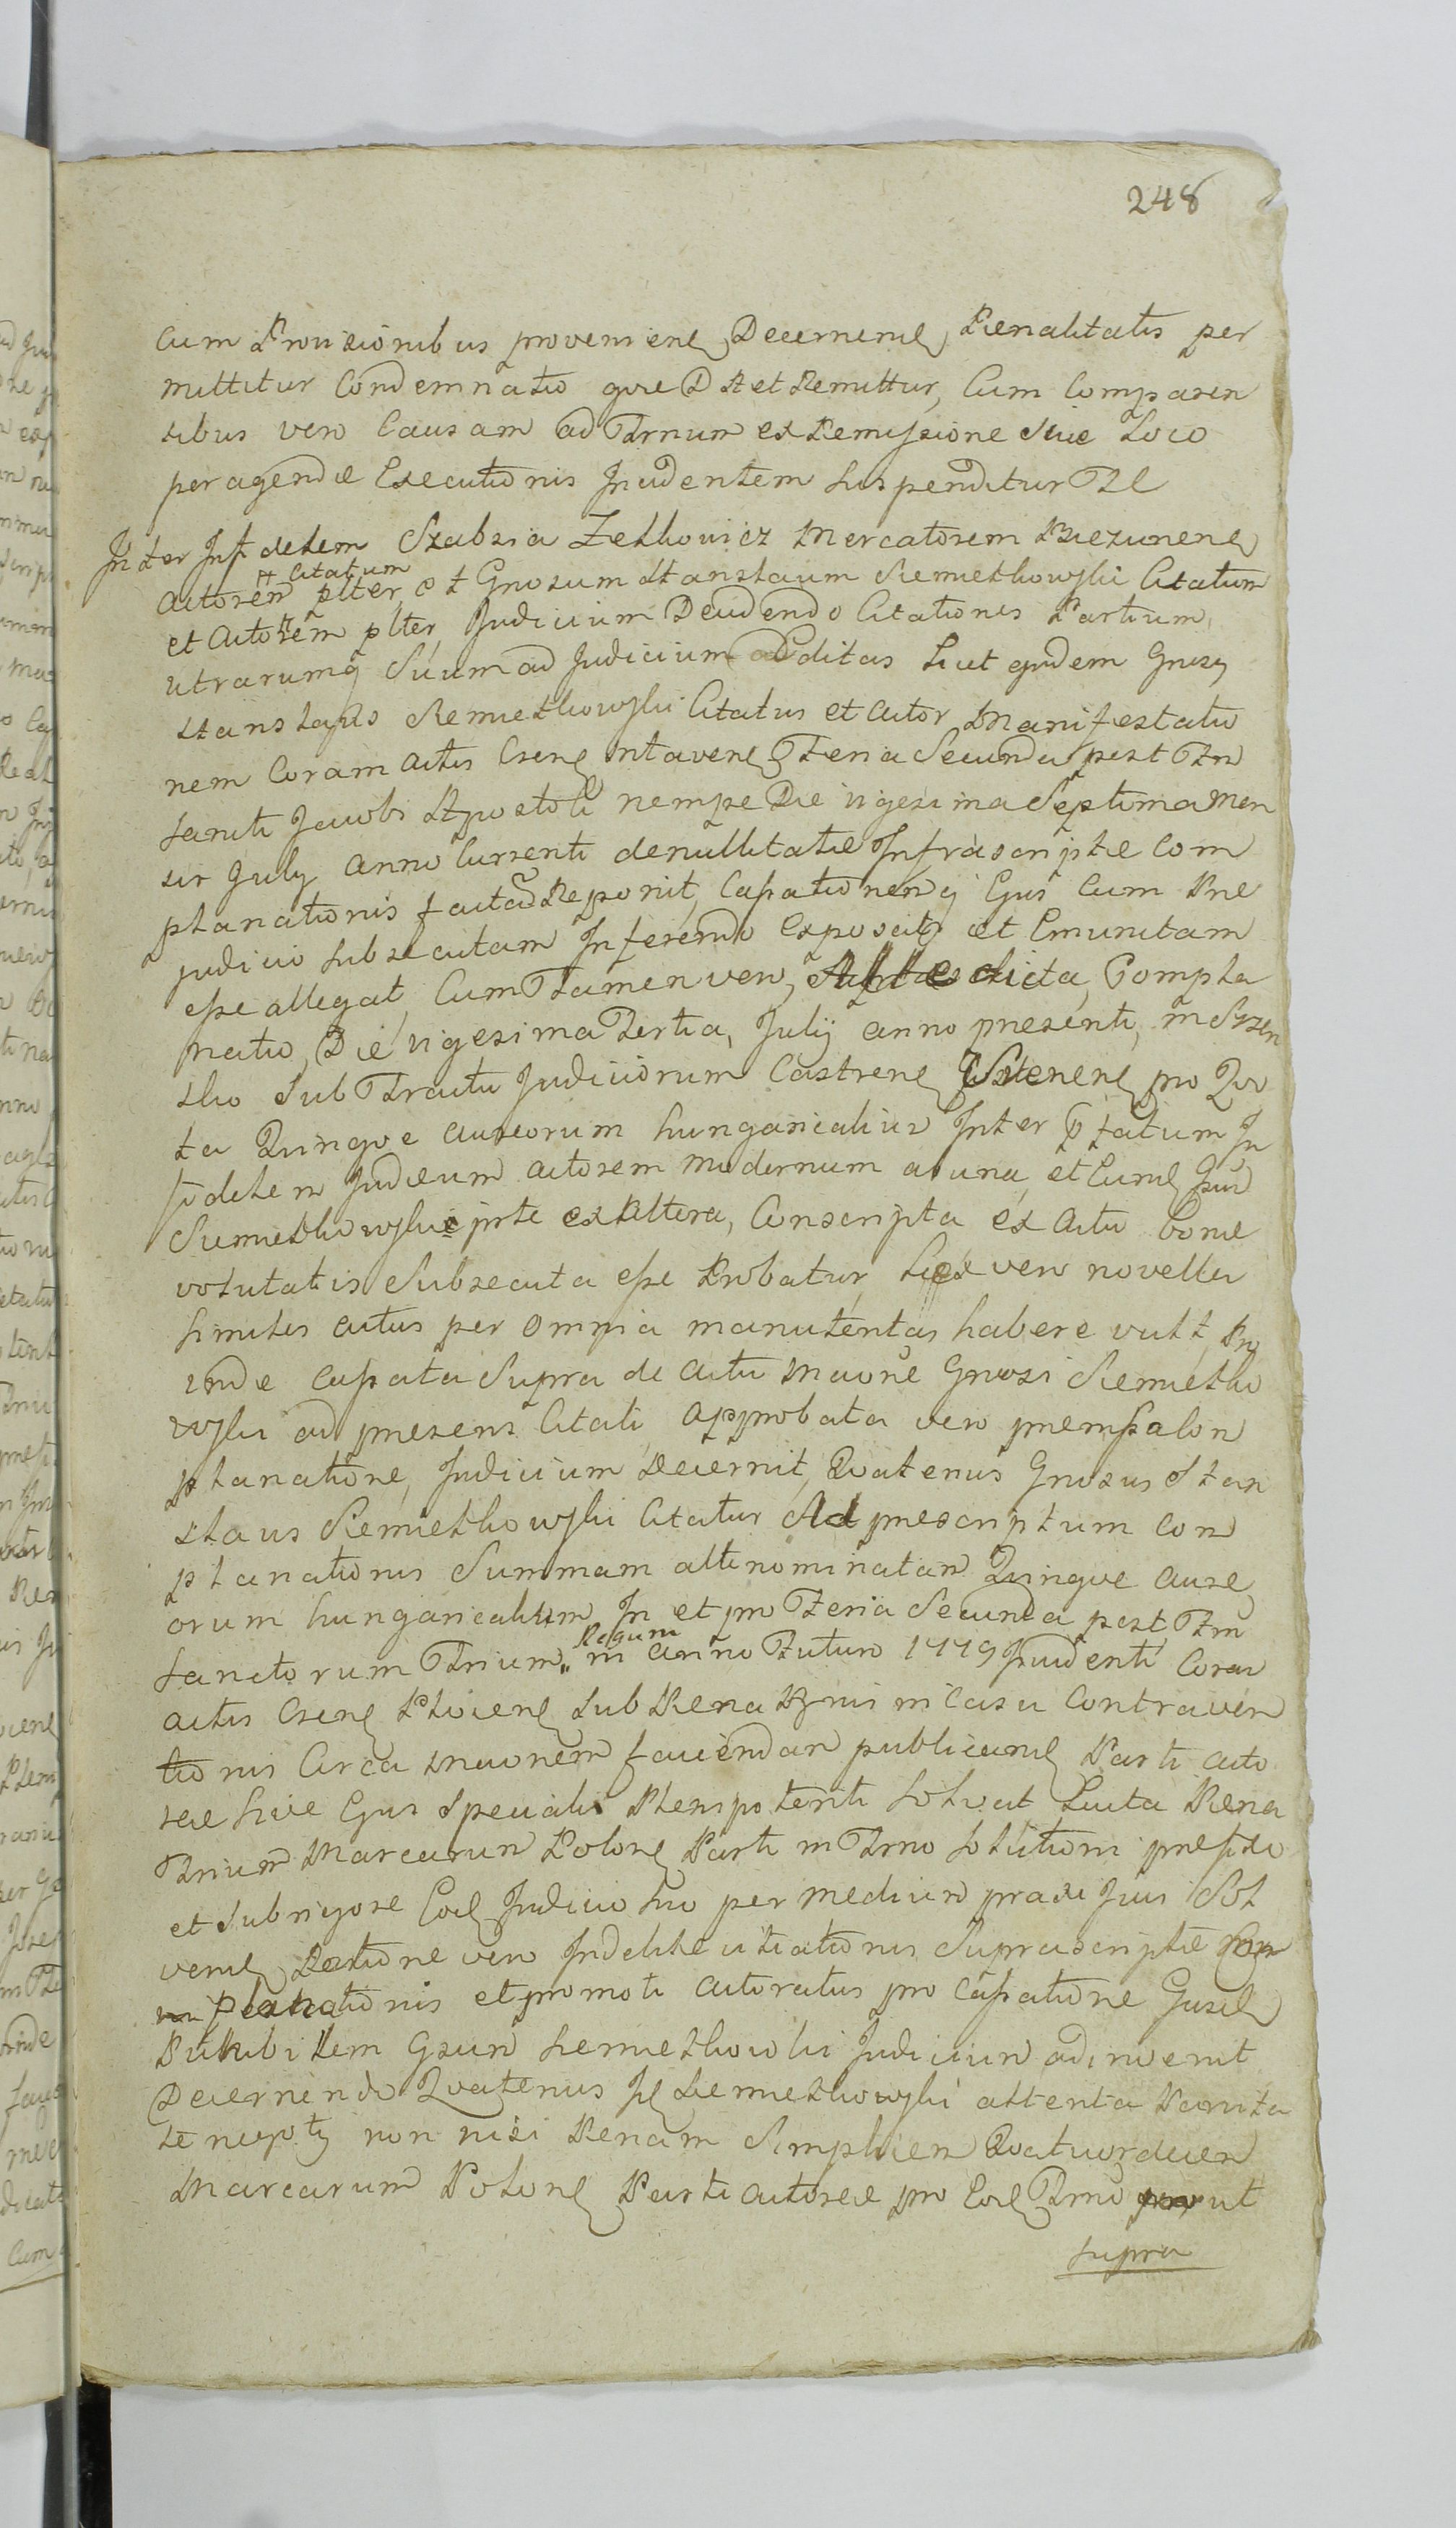 248
cum Provisionibus provenien Decernen Penalitatis per
mittitur Condemnatio qvæ D et Remittur, Cum Comparen
tibus vero Causam ad Trnum ex Remissione Suæ Loco
peragendæ Executionis Incidentem Suspenditur
Inter Infidelem Szabsia Zelkowicz Mercatorem Biezunen
et Citatum
Actorem plter, et Gnosum Stanislaum Siemiethowski Citatum
et Actorem plter Judicium Decidendo Citationes Partium
utrarumq Suum ad Judicium Editas Licet eqidem Gnosus
Stanislaus Siemiethowski Citatus et Actor Manifestatio
nem Coram Actis Csen Mlaven Feria Secunda post Fm
Sancti Jacobi Apostoli nempe Die vigesima Septima Men
sis July Anno Currenti de nullitate Infrascriptæ Com
planationis factam Reponit, Cassationemq Ejus Cum Præ
judicio Subsecutam Inferendo Exposcit et Emunitam
esse allegat, Cum Tamen vero dicta, Compla
natio, Die vigesima Tertia, Julij anno presenti, in Szren
sko Sub Tractu Judiciorum Castren pro Qvo
ta Qvinqve aureorum hungaricaliu Inter Infatum In
fidelem Judæum Actorem modernum ab una, et Eund Gsum
Siemiethowski prte ex Altera, Conscripta ex Actu bonæ
volutatis Subsecuta esse Probatur, Lex vero novella
Similes actus per omnia manutentas habere vult, Pro
inde Cassata Supra de Actu Maōne Gnosi Siemietho
wski ad presens Citati, Approbata vero præmissa Con
planatione, Judicium Decernit, Qvatenus Gnosus Stan
islaus Siemiethowski Citatur Ad præscriptum Con
planationis Summam altinominatam Qvinqve Aure
orum hungaricalium In et pro Feria Secunda post Fm
Sanctorum Trium Regum in anno Futuro 1779 Incidenti Coram
Actis Csen Plocen Sub Pena Bznis in Casu Contraven
tionis Circa Maōnem faciendam publicand Parti Acto
reæ Sive Ejus Speciali Plenipotenti Solvat Lucta Pena
Trium Marcarum Polon Parti in Trno Solutioni præfixo
et Sub rigore Eod Judicio huo per medium praxi Juris Sol
vend Ratione vero Indebitæ vitiationis Suprascriptæ Com
planationis et promoti Actoratus pro Cassatione Ejusd
Pukubilem Gsum Siemiethowski Judicium adinvenit
Decernendo Qvatenus Id Siemiethowski attenta Parvita
te negotij non nisi Penam Simplicem Qvatuordecem
Marcarum Polon Parti Actoreæ pro Eod Trno prout
Supra